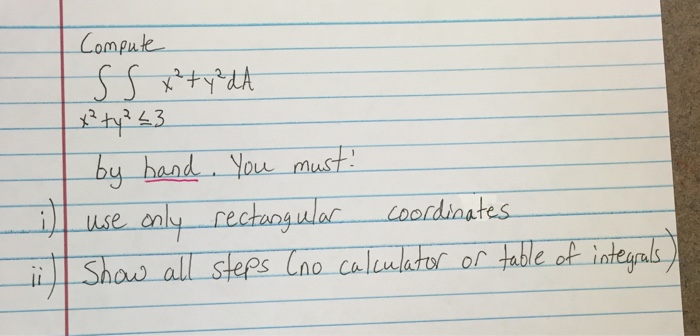 Compute
∫∫ x²+y²dA
x²+y²≤3
by hand. You must:
i) use only rectangular coordinates
ii) Show all steps (no calculator or table of integrals)